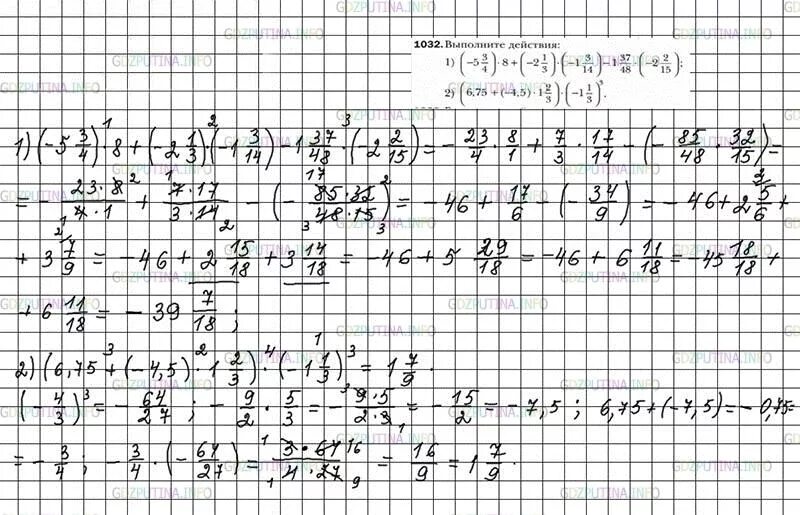 GDZPUTINA.INFO
1032. Выполните действия:
1) (-5 3/4) · 8 + (-2 1/3) · (-1 3/14) - 1 37/48 · (-2 2/15);
2) (6,75 + (-4,5) · 1 2/3) · (-1 1/3)³.
1) (-5 3/4) · 8 + (-2 1/3) · (-1 3/14) - 1 37/48 · (-2 2/15) = - 23/4 · 8/1 + 7/3 · 17/14 - (- 85/48 · 32/15) =
= - 23·8/4·1 + 7·17/3·14 - (- 85·32/48·15) = -46 + 17/6 - (- 34/9) = -46 + 2 5/6 +
+ 3 7/9 = -46 + 2 15/18 + 3 14/18 = -46 + 5 29/18 = -46 + 6 11/18 = -45 18/18 +
+ 6 11/18 = - 39 7/18 ;
2) (6,75 + (-4,5) · 1 2/3) · (-1 1/3)³ = 1 7/9 .
(- 4/3)³ = - 64/27 ; - 9/2 · 5/3 = - 9·5/2·3 = - 15/2 = -7,5 ; 6,75 + (-7,5) = -0,75 =
= - 3/4 ; - 3/4 · (- 64/27) = 3·64/4·27 = 16/9 = 1 7/9 .